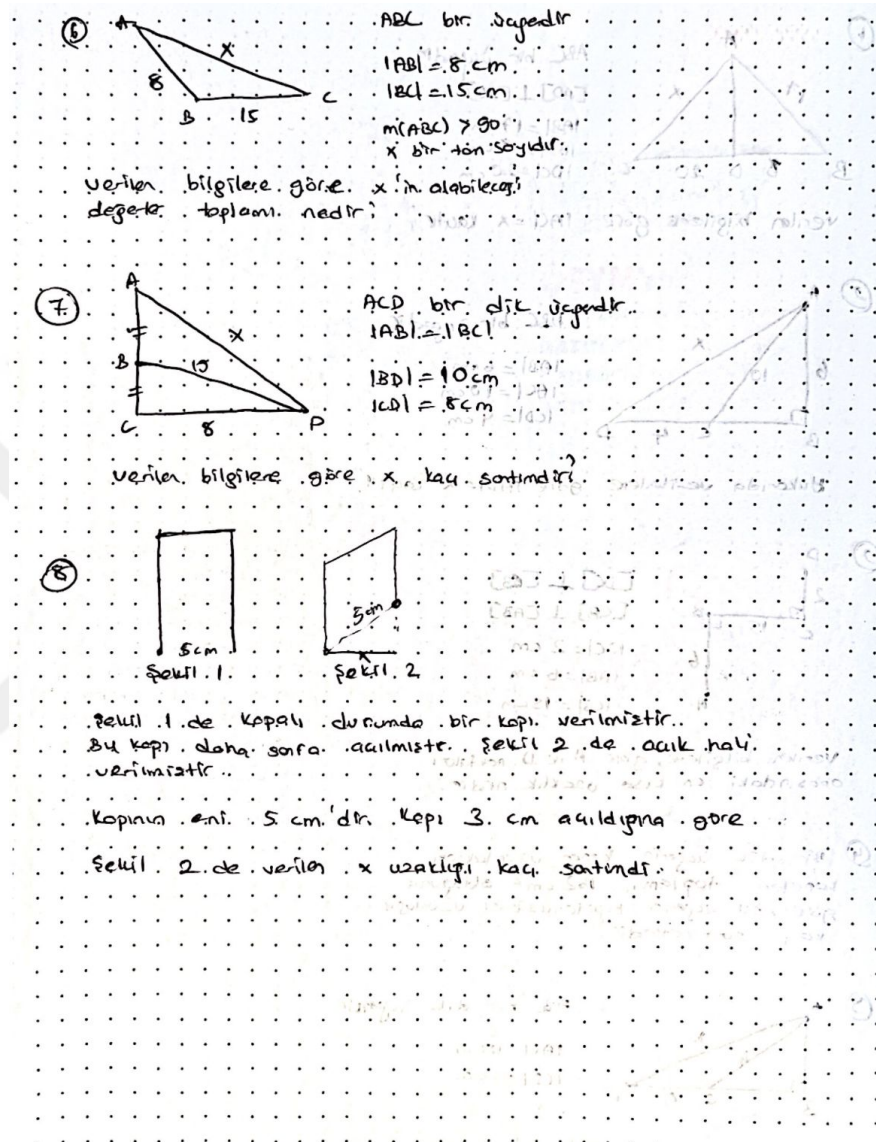 6
A
x
8
B
15
C
ABC bir üçgendir
|AB| = 8 cm
|BC| = 15 cm
m(ABC) > 90
x bir tam sayıdır.
Verilen bilgilere göre x'in alabileceği
değerler toplamı nedir?
7
A
x
B
10
C
8
D
ACD bir dik üçgendir.
|AB| = |BC|
|BD| = 10 cm
|CD| = 8 cm
Verilen bilgilere göre x kaç santimdir?
8
5 cm
Şekil 1.
5 cm
x
Şekil 2
Şekil 1 de kapalı durumda bir kapı verilmiştir.
Bu kapı daha sonra açılmıştır. Şekil 2 de açık hali
verilmiştir.
Kapının eni 5 cm'dir. Kapı 3 cm açıldığına göre
Şekil 2 de verilen x uzaklığı kaç santimdi.